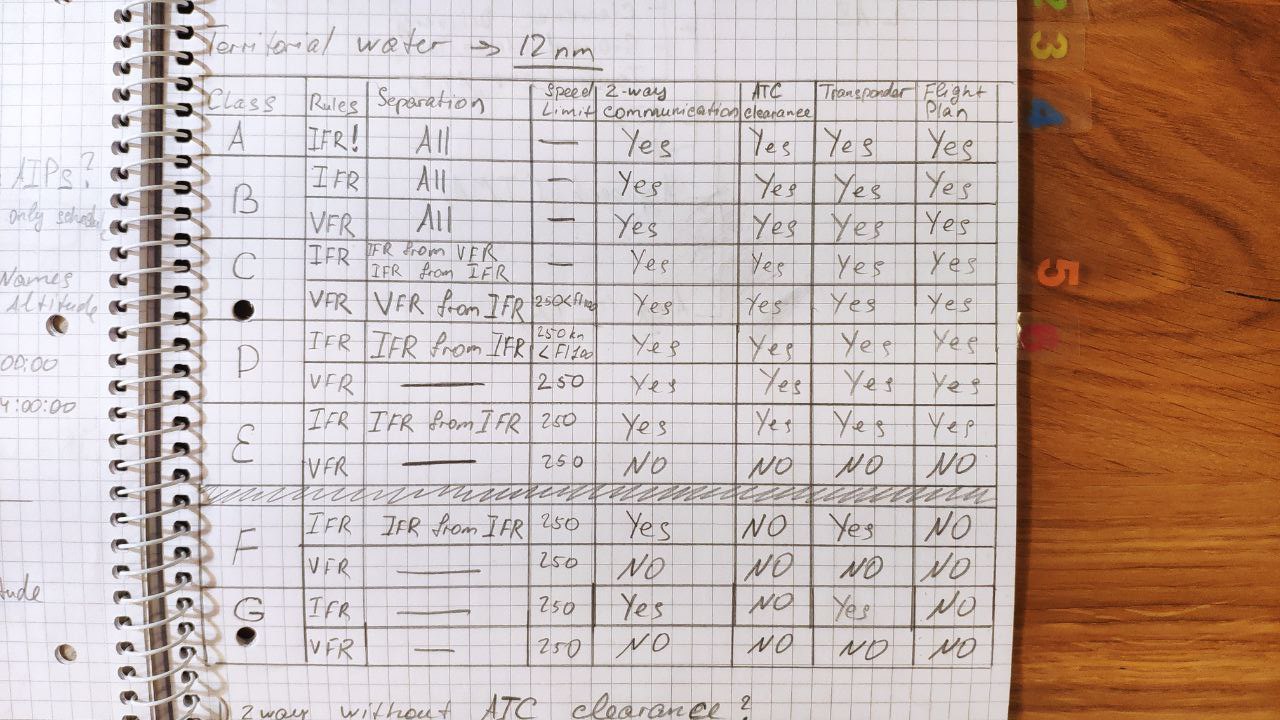 Territorial water → 12 nm
Class Rules Separation Speed Limit 2-way communication ATC clearance Transponder Flight Plan
A IFR! All — Yes Yes Yes Yes
B IFR All — Yes Yes Yes Yes
VFR All — Yes Yes Yes Yes
C IFR IFR from VFR IFR from IFR — Yes Yes Yes Yes
VFR VFR from IFR 250< Yes Yes Yes Yes
D IFR IFR from IFR 250 kn <Fl100 Yes Yes Yes Yes
VFR — 250 Yes Yes Yes Yes
E IFR IFR from IFR 250 Yes Yes Yes Yes
VFR — 250 NO NO NO NO
F IFR IFR from IFR 250 Yes NO Yes NO
VFR — 250 NO NO NO NO
G IFR — 250 Yes NO Yes NO
VFR — 250 NO NO NO NO
2way without ATC clearance?
AIPs?
only
Names
Altitude
00:00
4:00:00
2
3
4
5